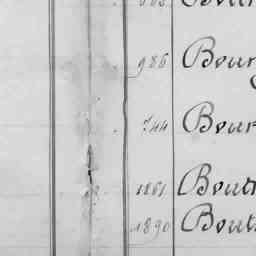 986 Bour
744 Bour
1861 Bout
1890 Bout